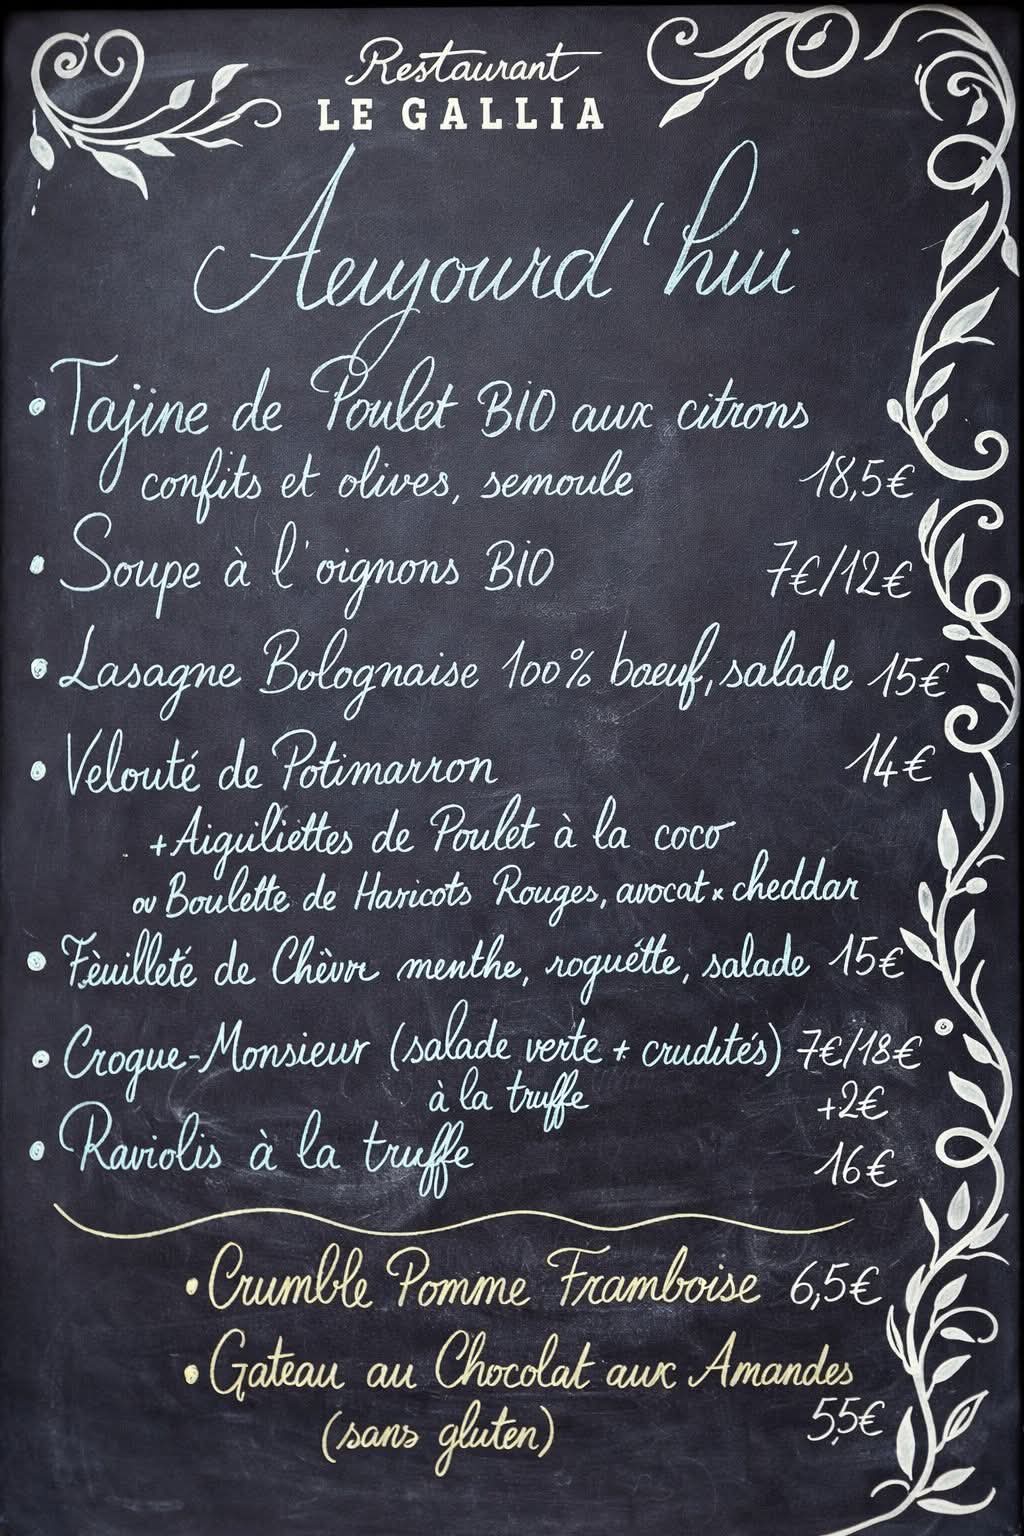 Restaurant
LE GALLIA
Aeujourd'hui
• Tajine de Poulet BIO aux citrons
confits et olives, semoule 18,5€
• Soupe à l'oignons BIO 7€/12€
• Lasagne Bolognaise 100% boeuf, salade 15€
• Velouté de Potimarron 14€
+Aiguiliettes de Poulet à la coco
ou Boulette de Haricots Rouges, avocat x cheddar
• Fèuilleté de Chèvre menthe, roguétte, salade 15€
• Croque-Monsieur (salade verte + crudités) 7€/18€
à la truffe +2€
• Raviolis à la truffe 16€
• Crumble Pomme Framboise 6,5€
• Gateau au Chocolat aux Amandes
(sans gluten) 5,5€